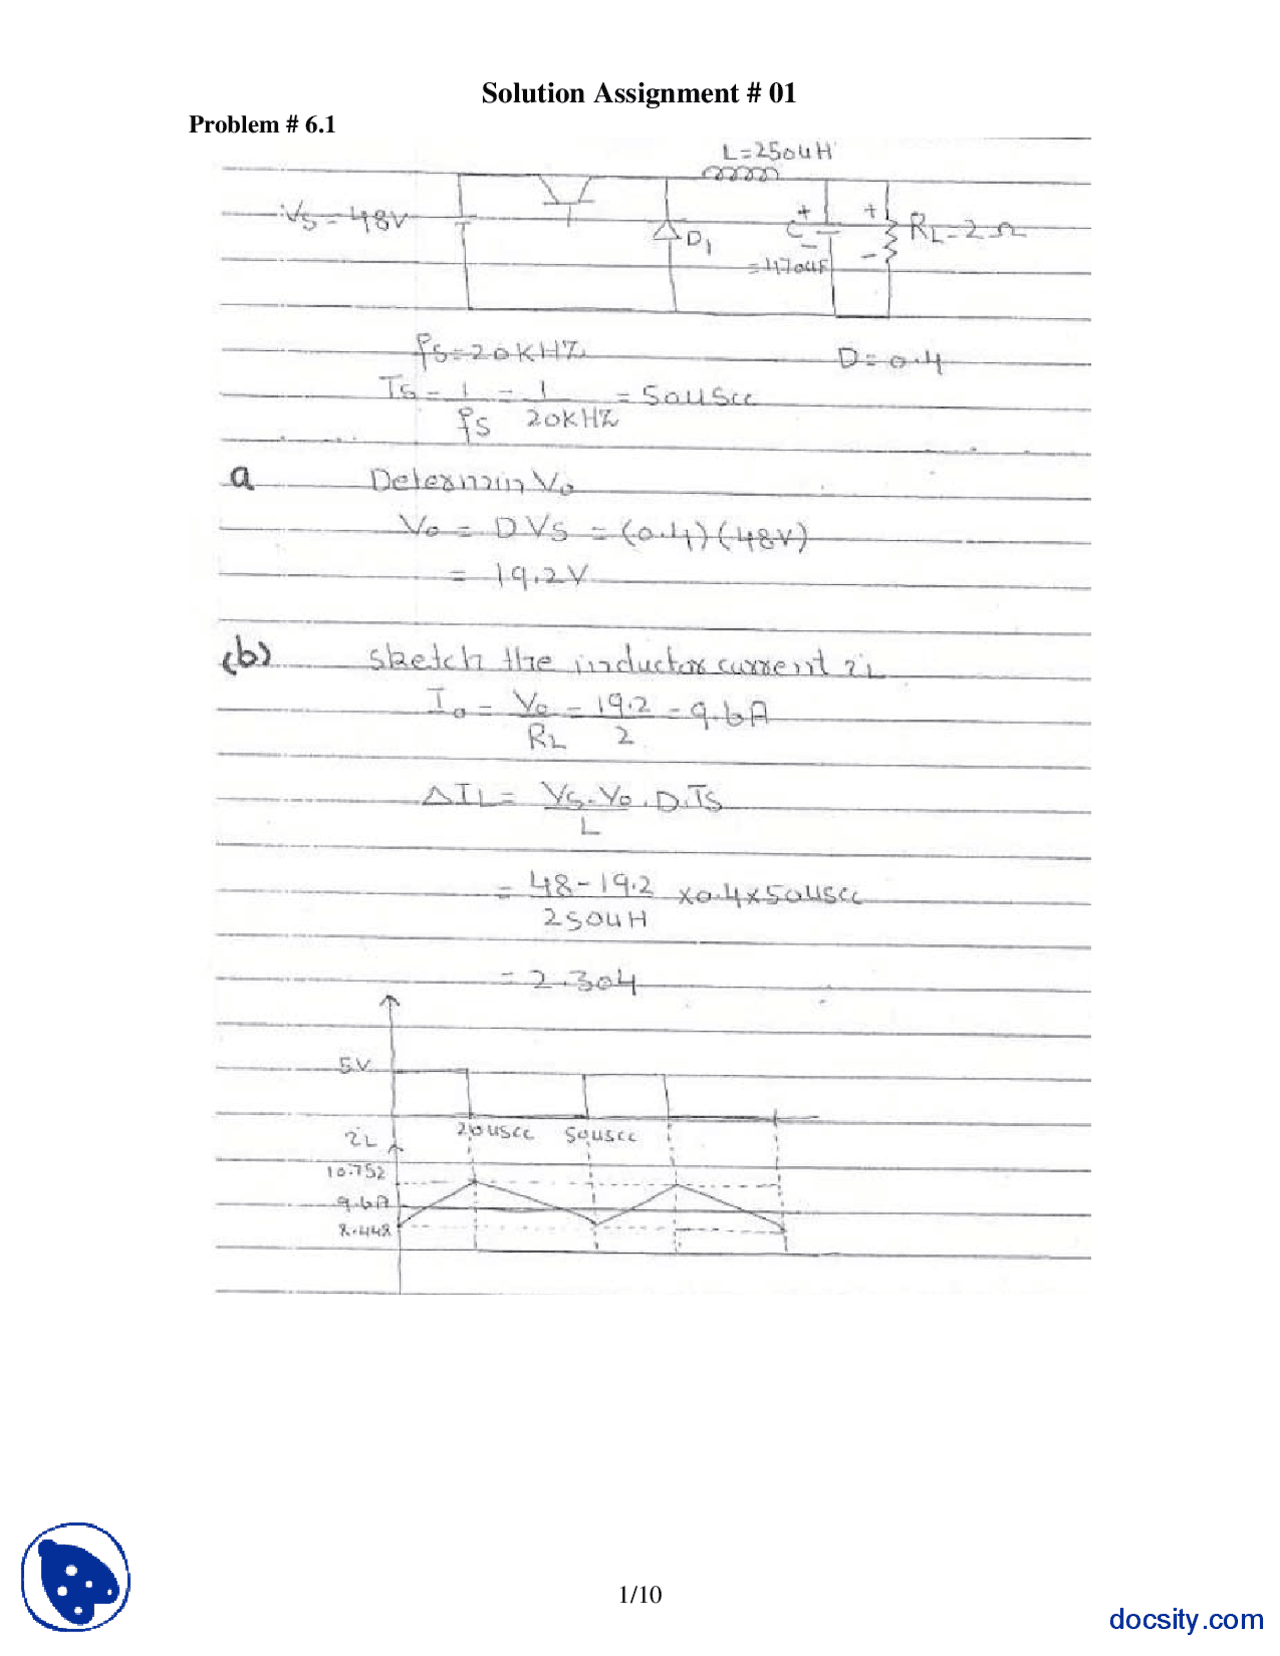 Solution Assignment # 01
Problem # 6.1
L=250uH
Vs=48V
D1
C
+
-
=470uF
+
-
RL=2Ω
fs=20KHZ
D=0.4
Ts = 1/fs = 1/20KHZ = 50usec
a Determin Vo
Vo = DVs = (0.4)(48V)
= 19.2V
(b) Sketch the inductor current iL
Io = Vo/RL = 19.2/2 = 9.6A
ΔIL = Vs-Vo/L . D.Ts
= 48-19.2/250uH x0.4x50usec
= 2.304
5V
20usec 50usec
iL
10.752
9.6A
8.448
1/10
docsity.com